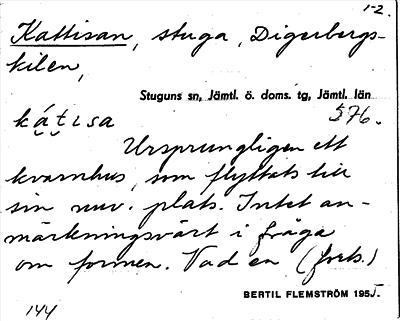 1-2.
Kattisan, stuga, Digerbergs-
kilen,
Stuguns sn, Jämtl. ö. doms. tg, Jämtl. län
576.
kátisa
Ursprungligen ett
kvarnhus, som flyttats till
sin nuv. plats. Intet an-
märkningsvärt i fråga
om formen. Vad en (forts.)
BERTIL FLEMSTRÖM 1955.
144